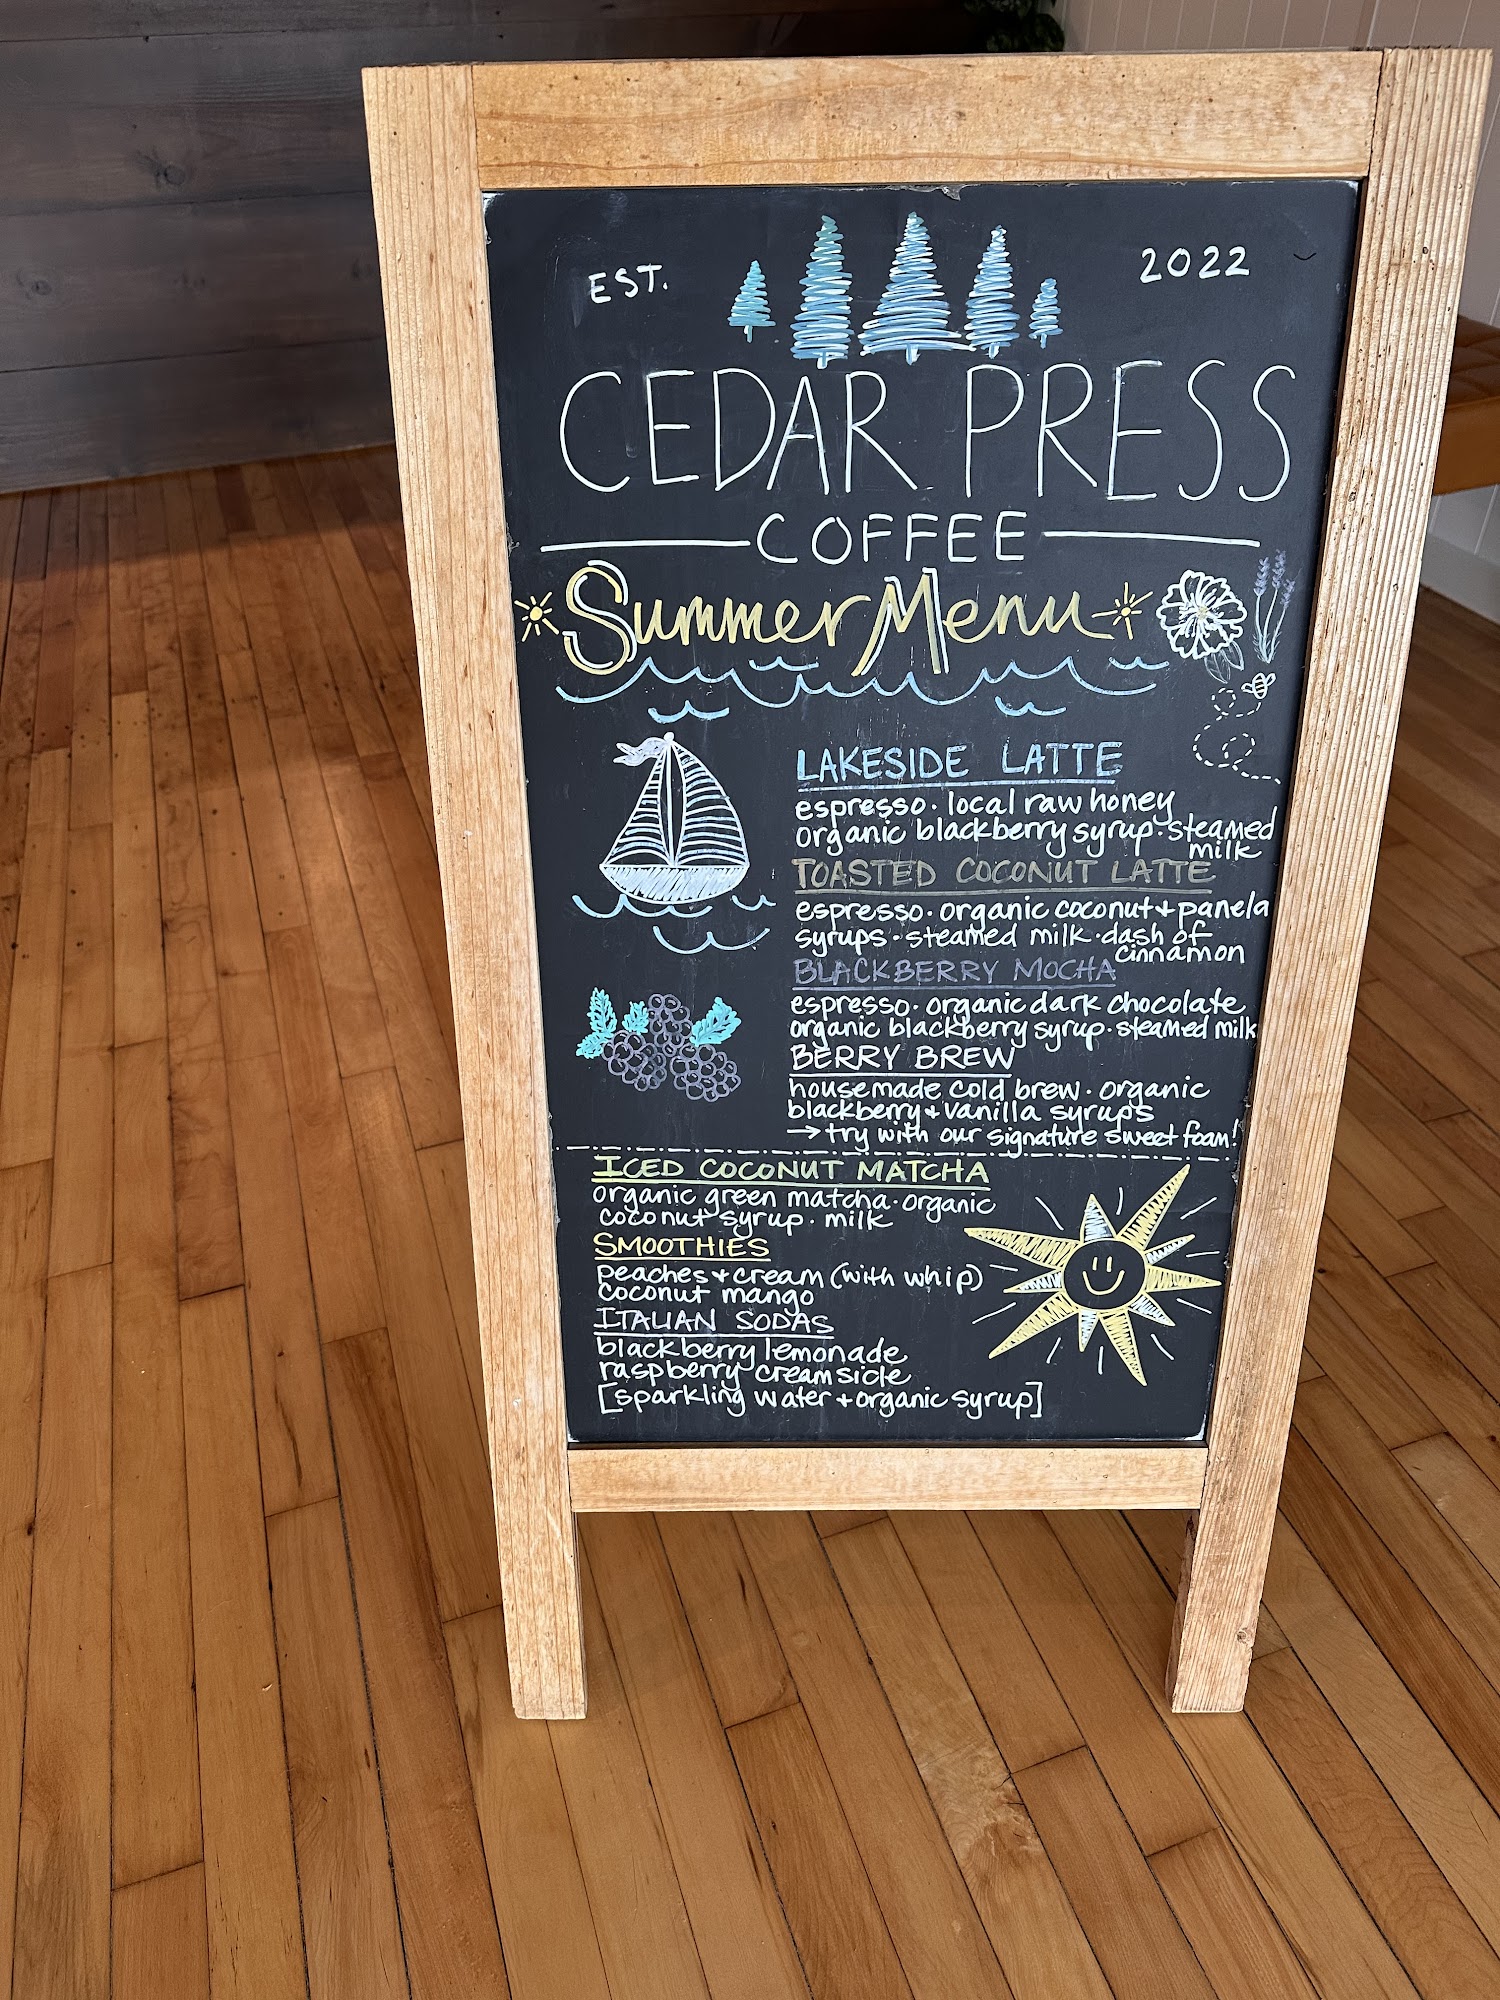 EST. 2022
CEDAR PRESS
COFFEE
Summer Menu
LAKESIDE LATTE
espresso · local raw honey
organic blackberry syrup · steamed
milk
TOASTED COCONUT LATTE
espresso · organic coconut + panela
syrups · steamed milk · dash of
cinnamon
BLACKBERRY MOCHA
espresso · organic dark chocolate
organic blackberry syrup · steamed milk
BERRY BREW
housemade cold brew · organic
blackberry + vanilla syrups
→ try with our signature sweet foam!
ICED COCONUT MATCHA
organic green matcha · organic
coconut syrup · milk
SMOOTHIES
peaches + cream (with whip)
coconut mango
ITALIAN SODAS
blackberry lemonade
raspberry creamsicle
[sparkling water + organic syrup]